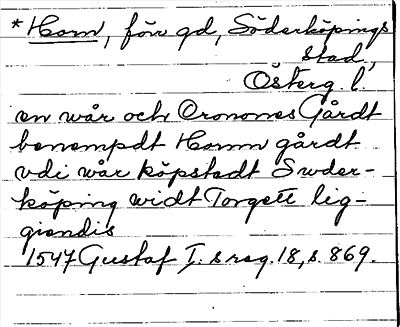 *Horn, förr gd, Söderköpings
stad,
Österg. l.
en wår och Cronones Gårdt
benempdt Hornn gårdt
vdi wår köpstadt Suder-
köping widt Torgett lig-
giendis
1547 Gustaf I:s reg. 18, s. 869.